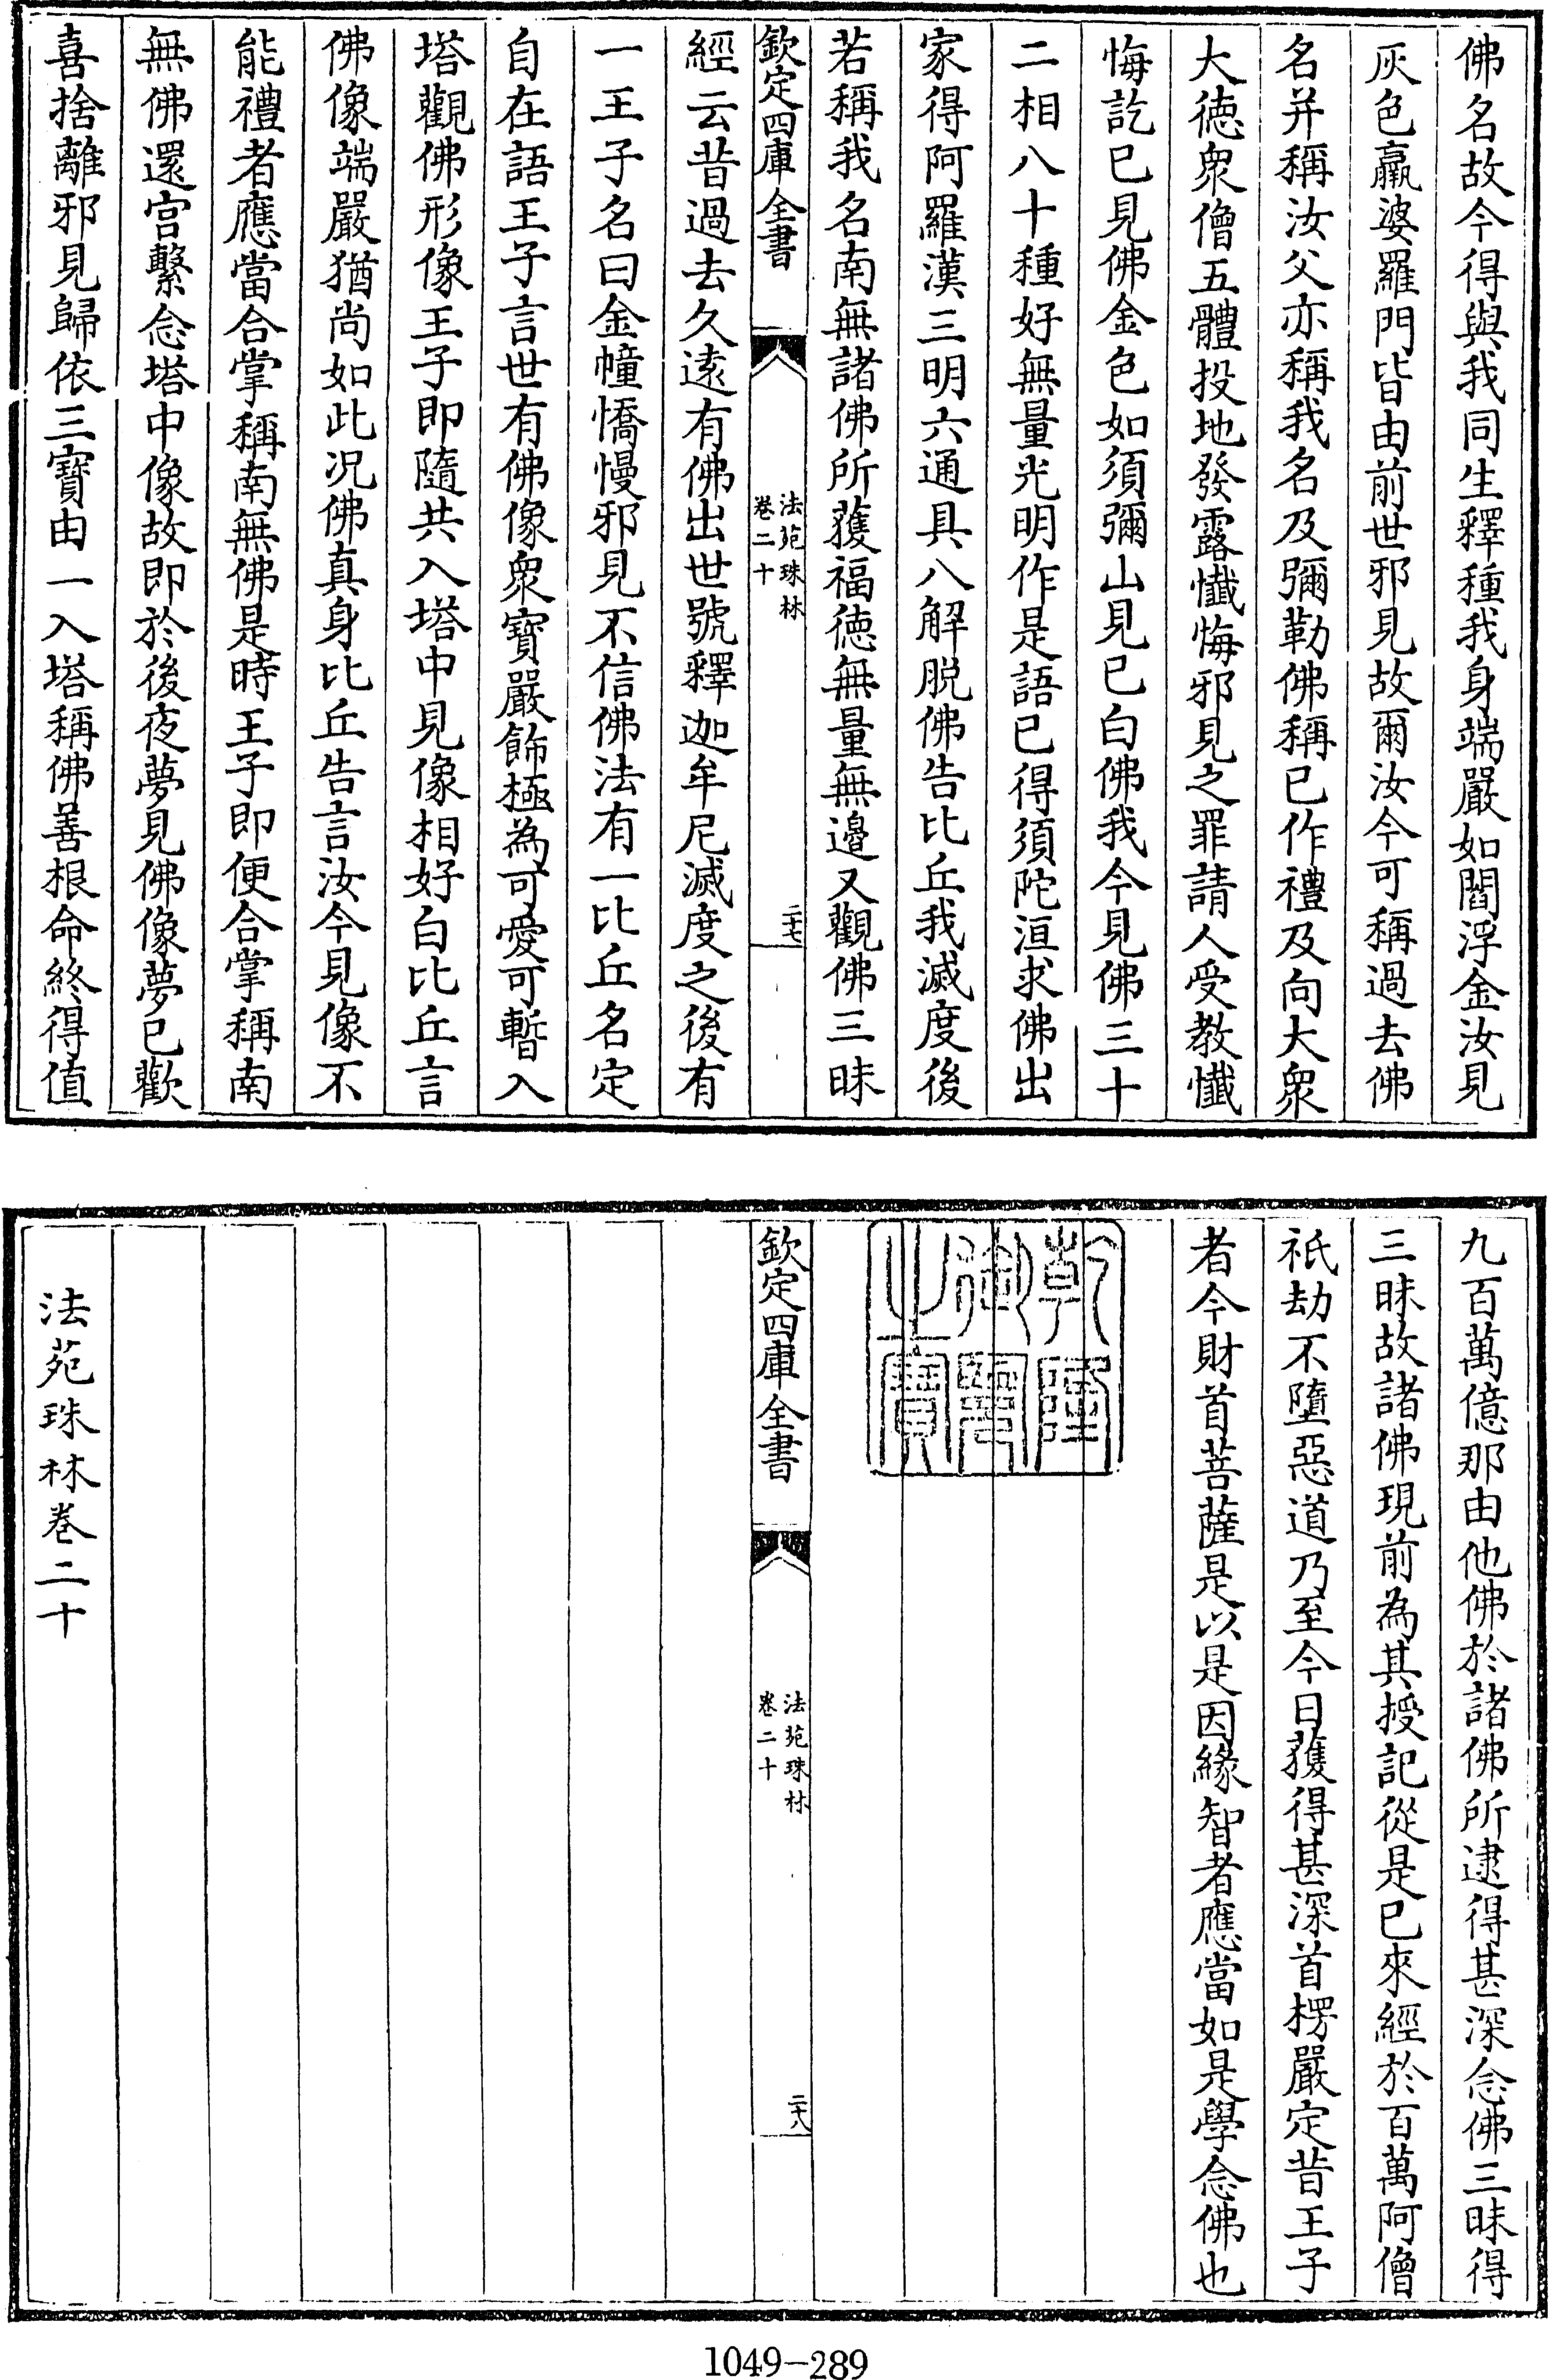 佛名故今得與我同生釋種我身端嚴如閻浮金汝見
灰色羸婆羅門皆由前世邪見故爾汝今可稱過去佛
名并稱汝父亦稱我名及彌勒佛稱已作禮及向大衆
大徳衆僧五體投地發露懺悔邪見之罪請人受教懺
悔訖已見佛金色如須彌山見已白佛我今見佛三十
二相八十種好無量光明作是語已得須陀洹求佛出
家得阿羅漢三明六通具八解脱佛告比丘我滅度後
若稱我名南無諸佛所獲福徳無量無邊又觀佛三昧
欽定四庫全書
法苑珠林
卷二十
二十七
經云昔過去久逺有佛出世號釋迦牟尼滅度之後有
一王子名曰金幢憍慢邪見不信佛法有一比丘名定
自在語王子言世有佛像衆寶嚴飾極為可愛可暫入
塔觀佛形像王子即隨共入塔中見像相好白比丘言
佛像端嚴猶尚如此况佛真身比丘告言汝今見像不
能禮者應當合掌稱南無佛是時王子即便合掌稱南
無佛還宫繫念塔中像故即於後夜夢見佛像夢已歡
喜捨離邪見歸依三寶由一入塔稱佛善根命終得值
九百萬億那由他佛於諸佛所逮得甚深念佛三昧得
三昧故諸佛現前為其授記從是已來經於百萬阿僧
祇劫不墮惡道乃至今日獲得甚深首楞嚴定昔王子
者今財首菩薩是以是因緣智者應當如是學念佛也
乾隆
御覽
之寶
欽定四庫全書
法苑珠林
卷二十
二十八
法苑珠林卷二十
1049-289